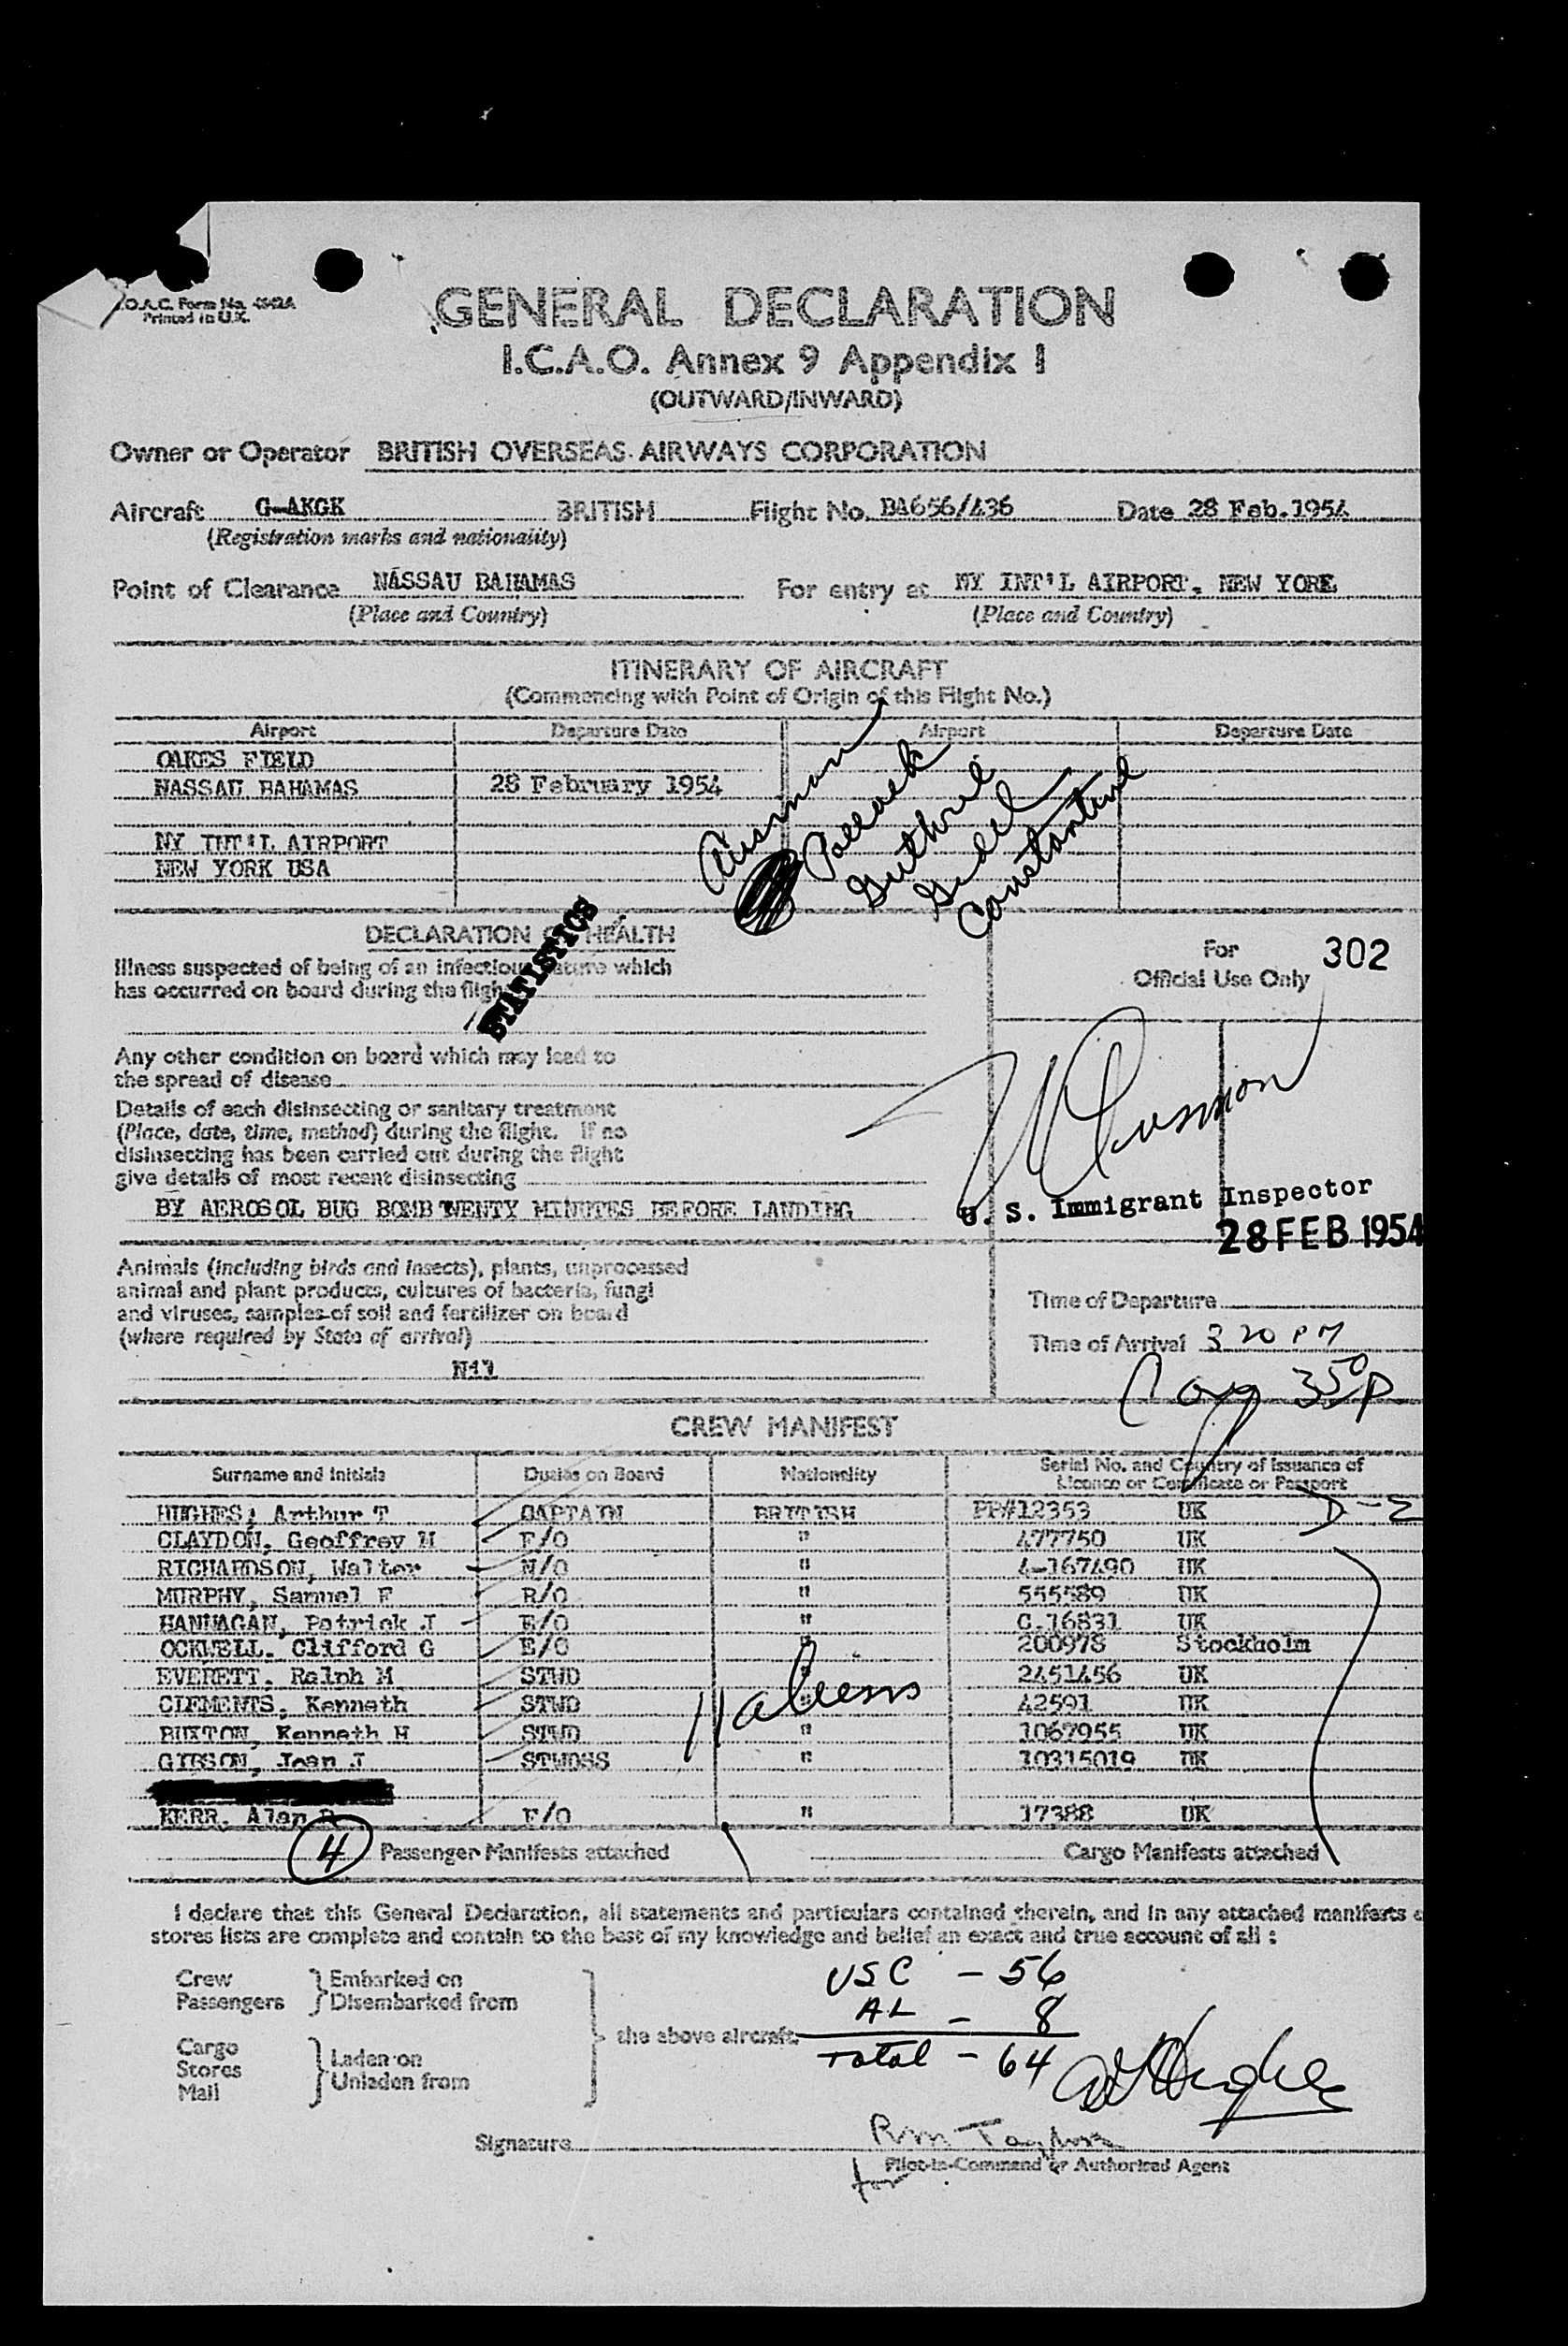 .O.A.C. Form No. 4542A
Printed in U.K.
GENERAL DECLARATION
I.C.A.O. Annex 9 Appendix I
(OUTWARD/INWARD)
Owner or Operator BRITISH OVERSEAS AIRWAYS CORPORATION
Aircraft G-AKGK BRITISH Flight No. BA656/436 Date 28 Feb.1954
(Registration marks and nationality)
Point of Clearance NASSAU BAHAMAS For entry at NY INT'L AIRPORT, NEW YORK
(Place and Country) (Place and Country)
ITINERARY OF AIRCRAFT
(Commencing with Point of Origin of this Flight No.)
Airport Departure Date Airport Departure Date
OAKES FIELD
NASSAU BAHAMAS 28 February 1954
NY INT'L AIRPORT
NEW YORK USA
Pollack
Guthrie
Constantine
DECLARATION OF HEALTH
STATISTICS
For 302
Official Use Only
Illness suspected of being of an infectious nature which
has occurred on board during the flight
Any other condition on board which may lead to
the spread of disease
Details of each disinsecting or sanitary treatment
(Place, date, time, method) during the flight. If no
disinsecting has been carried out during the flight
give details of most recent disinsecting
BY AEROSOL BUG BOMB TWENTY MINUTES BEFORE LANDING
U. S. Immigrant Inspector
28 FEB 1954
Animals (including birds and insects), plants, unprocessed
animal and plant products, cultures of bacteria, fungi
and viruses, samples of soil and fertilizer on board
(where required by State of arrival)
Nil
Time of Departure
Time of Arrival 3 20 PM
350P
CREW MANIFEST
Surname and Initials Duties on Board Nationality Serial No. and Country of Issuance of
Licence or Certificate or Passport
HUGHES, Arthur T CAPTAIN BRITISH PP#12353 UK D-2
CLAYDON, Geoffrey M F/O " 477750 UK
RICHARDSON, Walter N/O " 4-167490 UK
MURPHY, Samuel F R/O " 555589 UK
HANNAGAN, Patrick J E/O " C.16831 UK
OCKWELL, Clifford G E/O " 200978 Stockholm
EVERETT, Ralph M STWD " 2451456 UK
CLEMENTS, Kenneth STWD " 42591 UK
BUXTON, Kenneth H STWD " 1067955 UK
GIBSON, Jean J STWDSS " 10315019 UK
11 aliens
KERR, Alan R F/O " 17388 UK
4 Passenger Manifests attached Cargo Manifests attached
I declare that this General Declaration, all statements and particulars contained therein, and in any attached manifests
stores lists are complete and contain to the best of my knowledge and belief an exact and true account of all :
Crew Embarked on
Passengers Disembarked from
the above aircraft.
Cargo
Stores Laden on
Mail Unladen from
USC - 56
AL - 8
Total - 64
A T Hughes
Signature RM Taylor
for Pilot-in-Command or Authorised Agent